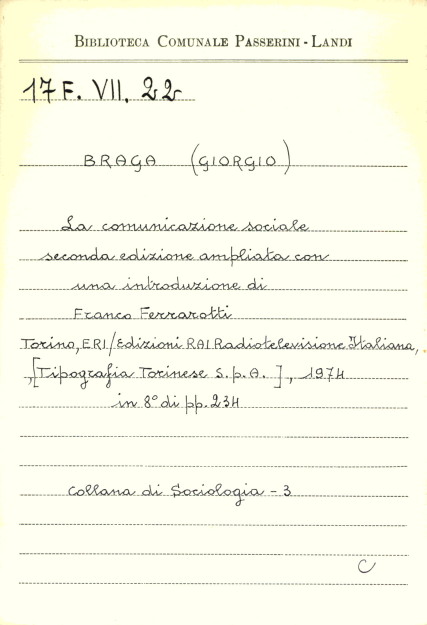 BIBLIOTECA COMUNALE PASSERINI - LANDI
17 F. VII. 22
BRAGA (GIORGIO)
La comunicazione sociale
seconda edizione ampliata con
una introduzione di
Franco Ferrarotti
Torino, ERI/Edizioni RAI Radiotelevisione Italiana,
, [Tipografia Torinese S.p.A. ], 1974
in 8° di pp. 234
Collana di Sociologia - 3
C